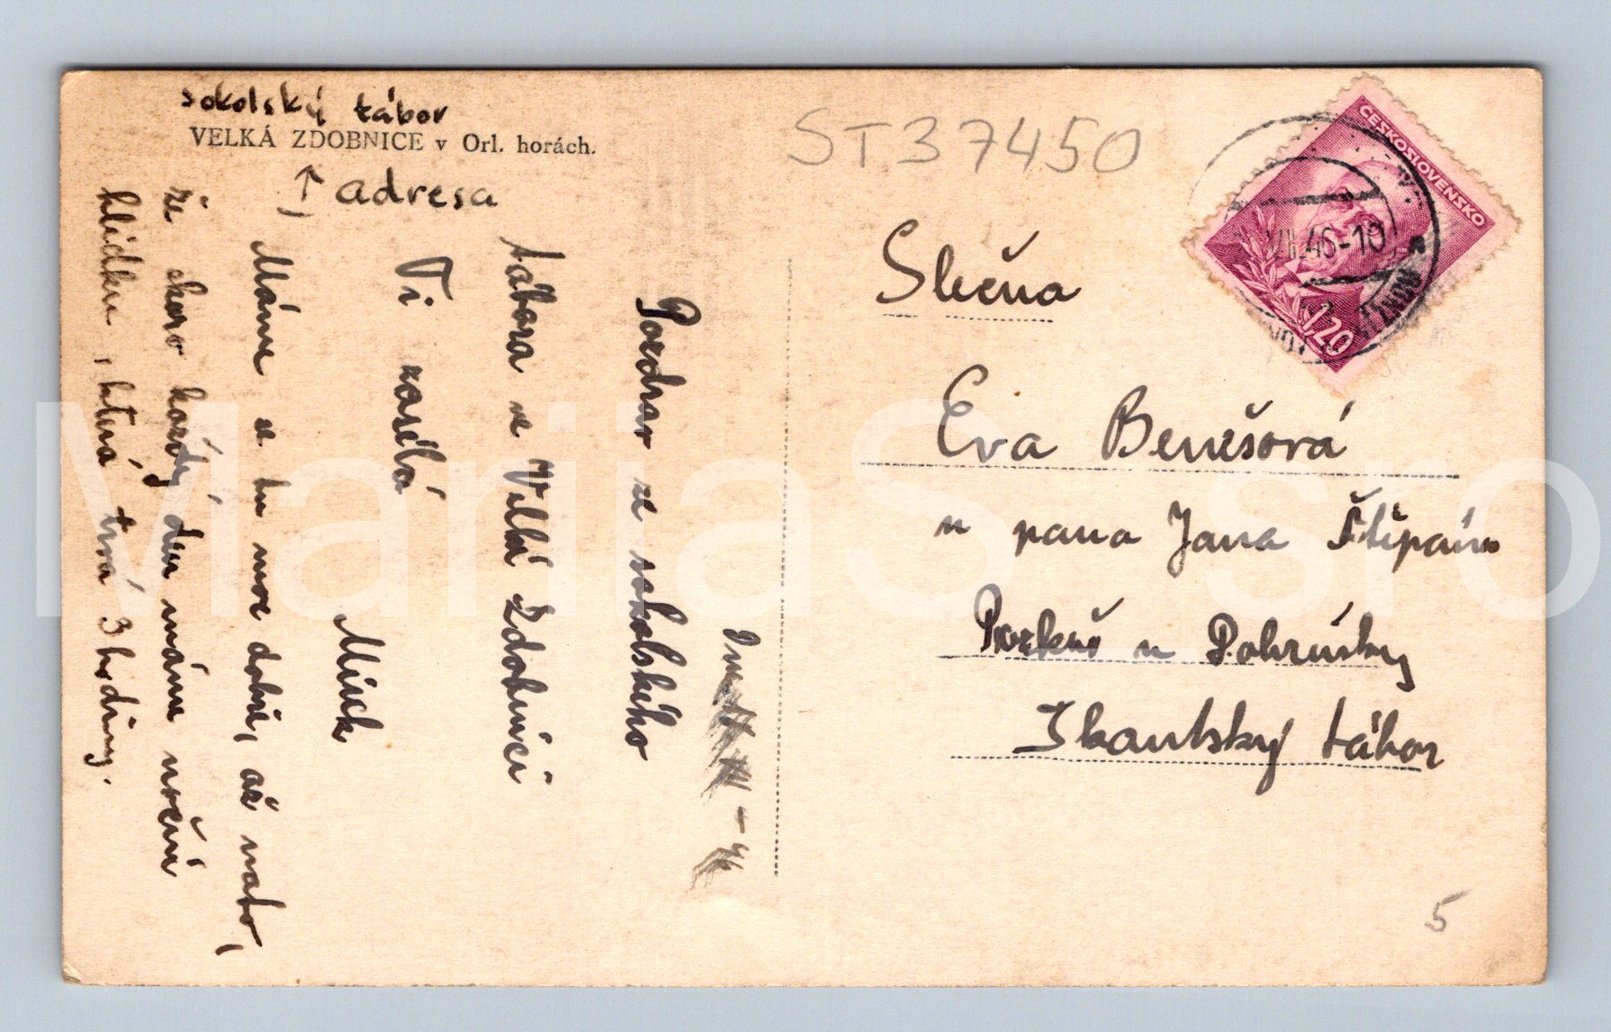 sokolský tábor
VELKÁ ZDOBNICE v Orl. horách.
↑ adresa
ST37450
ČESKOSLOVENSKO
1,20
46-10
Pozdrav ze sokolského
tábora ve Velké Zdobnici
Ti zasílá
Máme se tu moc dobře, až na to,
že skoro každý den máme noční
hlídku, která trvá 3 hodiny.
Slečna
Eva Benešová
u pana Jana
u
Skautský tábor
5
MarijaS sro